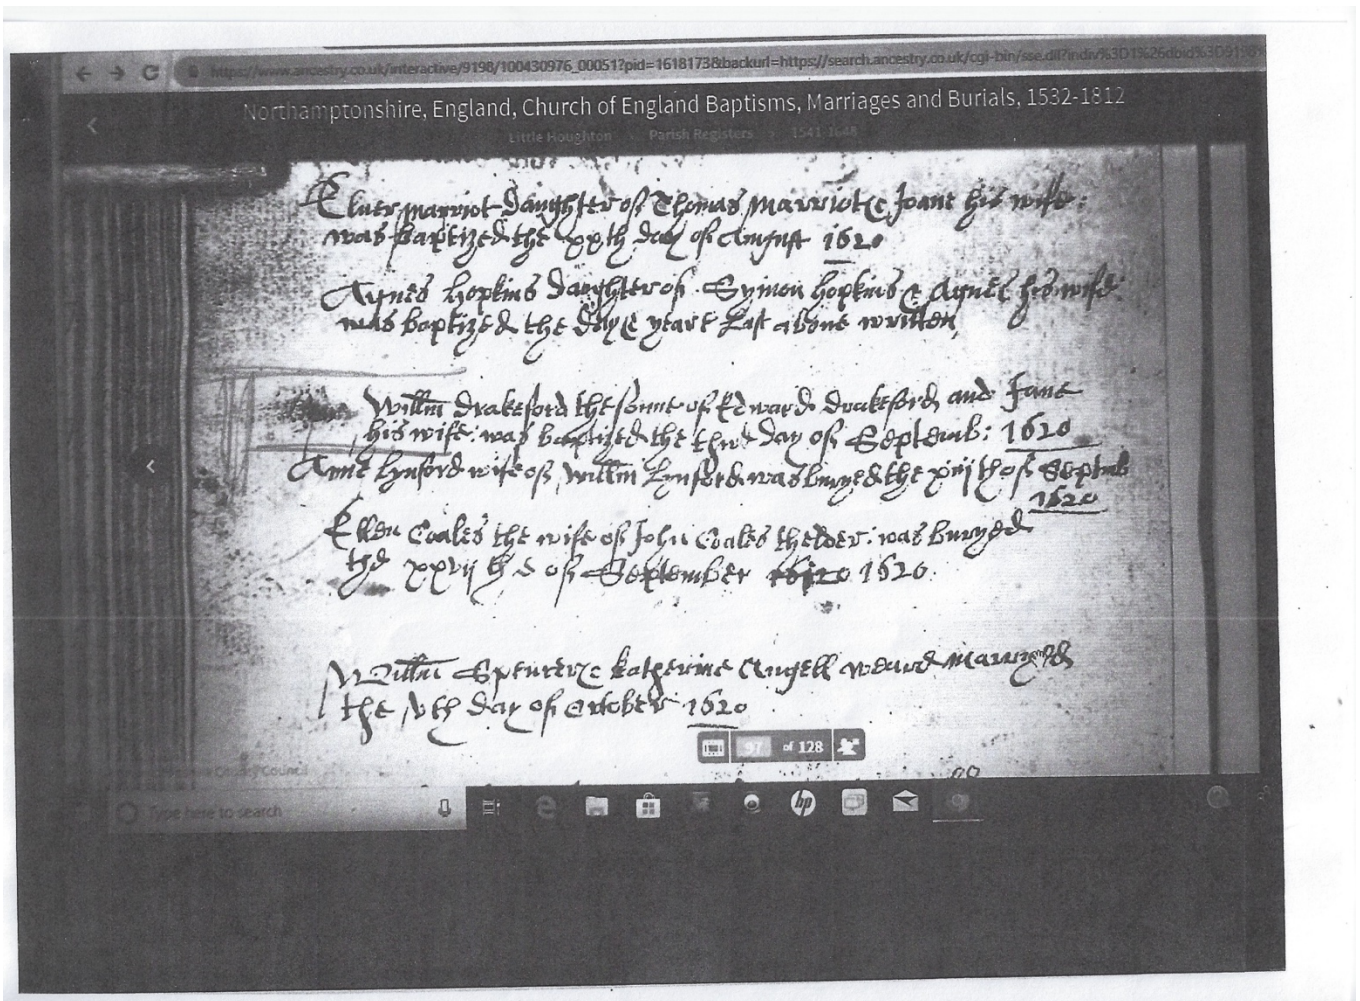 https://www.ancestry.co.uk/interactive/9198/100430976_00051?pid=1618173&backurl=https://search.ancestry.co.uk/cgi-bin/sse.dll?indiv%3D1%26dbid%3D9198%
Northamptonshire, England, Church of England Baptisms, Marriages and Burials, 1532-1812
Little Houghton > Parish Registers > 1541-1648
Marriot daughter of Thomas Marriot & Joane his wife:
was baptized the xxth day of August 1620
Agnes Hopkins daughter of Symon Hopkins & Agnes his wife
was baptized the day & yeare last above written
Willm drakeford the sonne of Edward drakeford and Jane
his wife: was baptized the third day of Septemb: 1620
Anne Lynford wife of Willm Lynford was buryed the th of Septmb
1620
Ellen Coales the wife of John Coales thelder: was buryed
the xxvijth of September 1620 1620
Willm Spencer & Katherine Angell weare marryed
the vth day of October 1620
97 of 128
County Council
Type here to search
hp